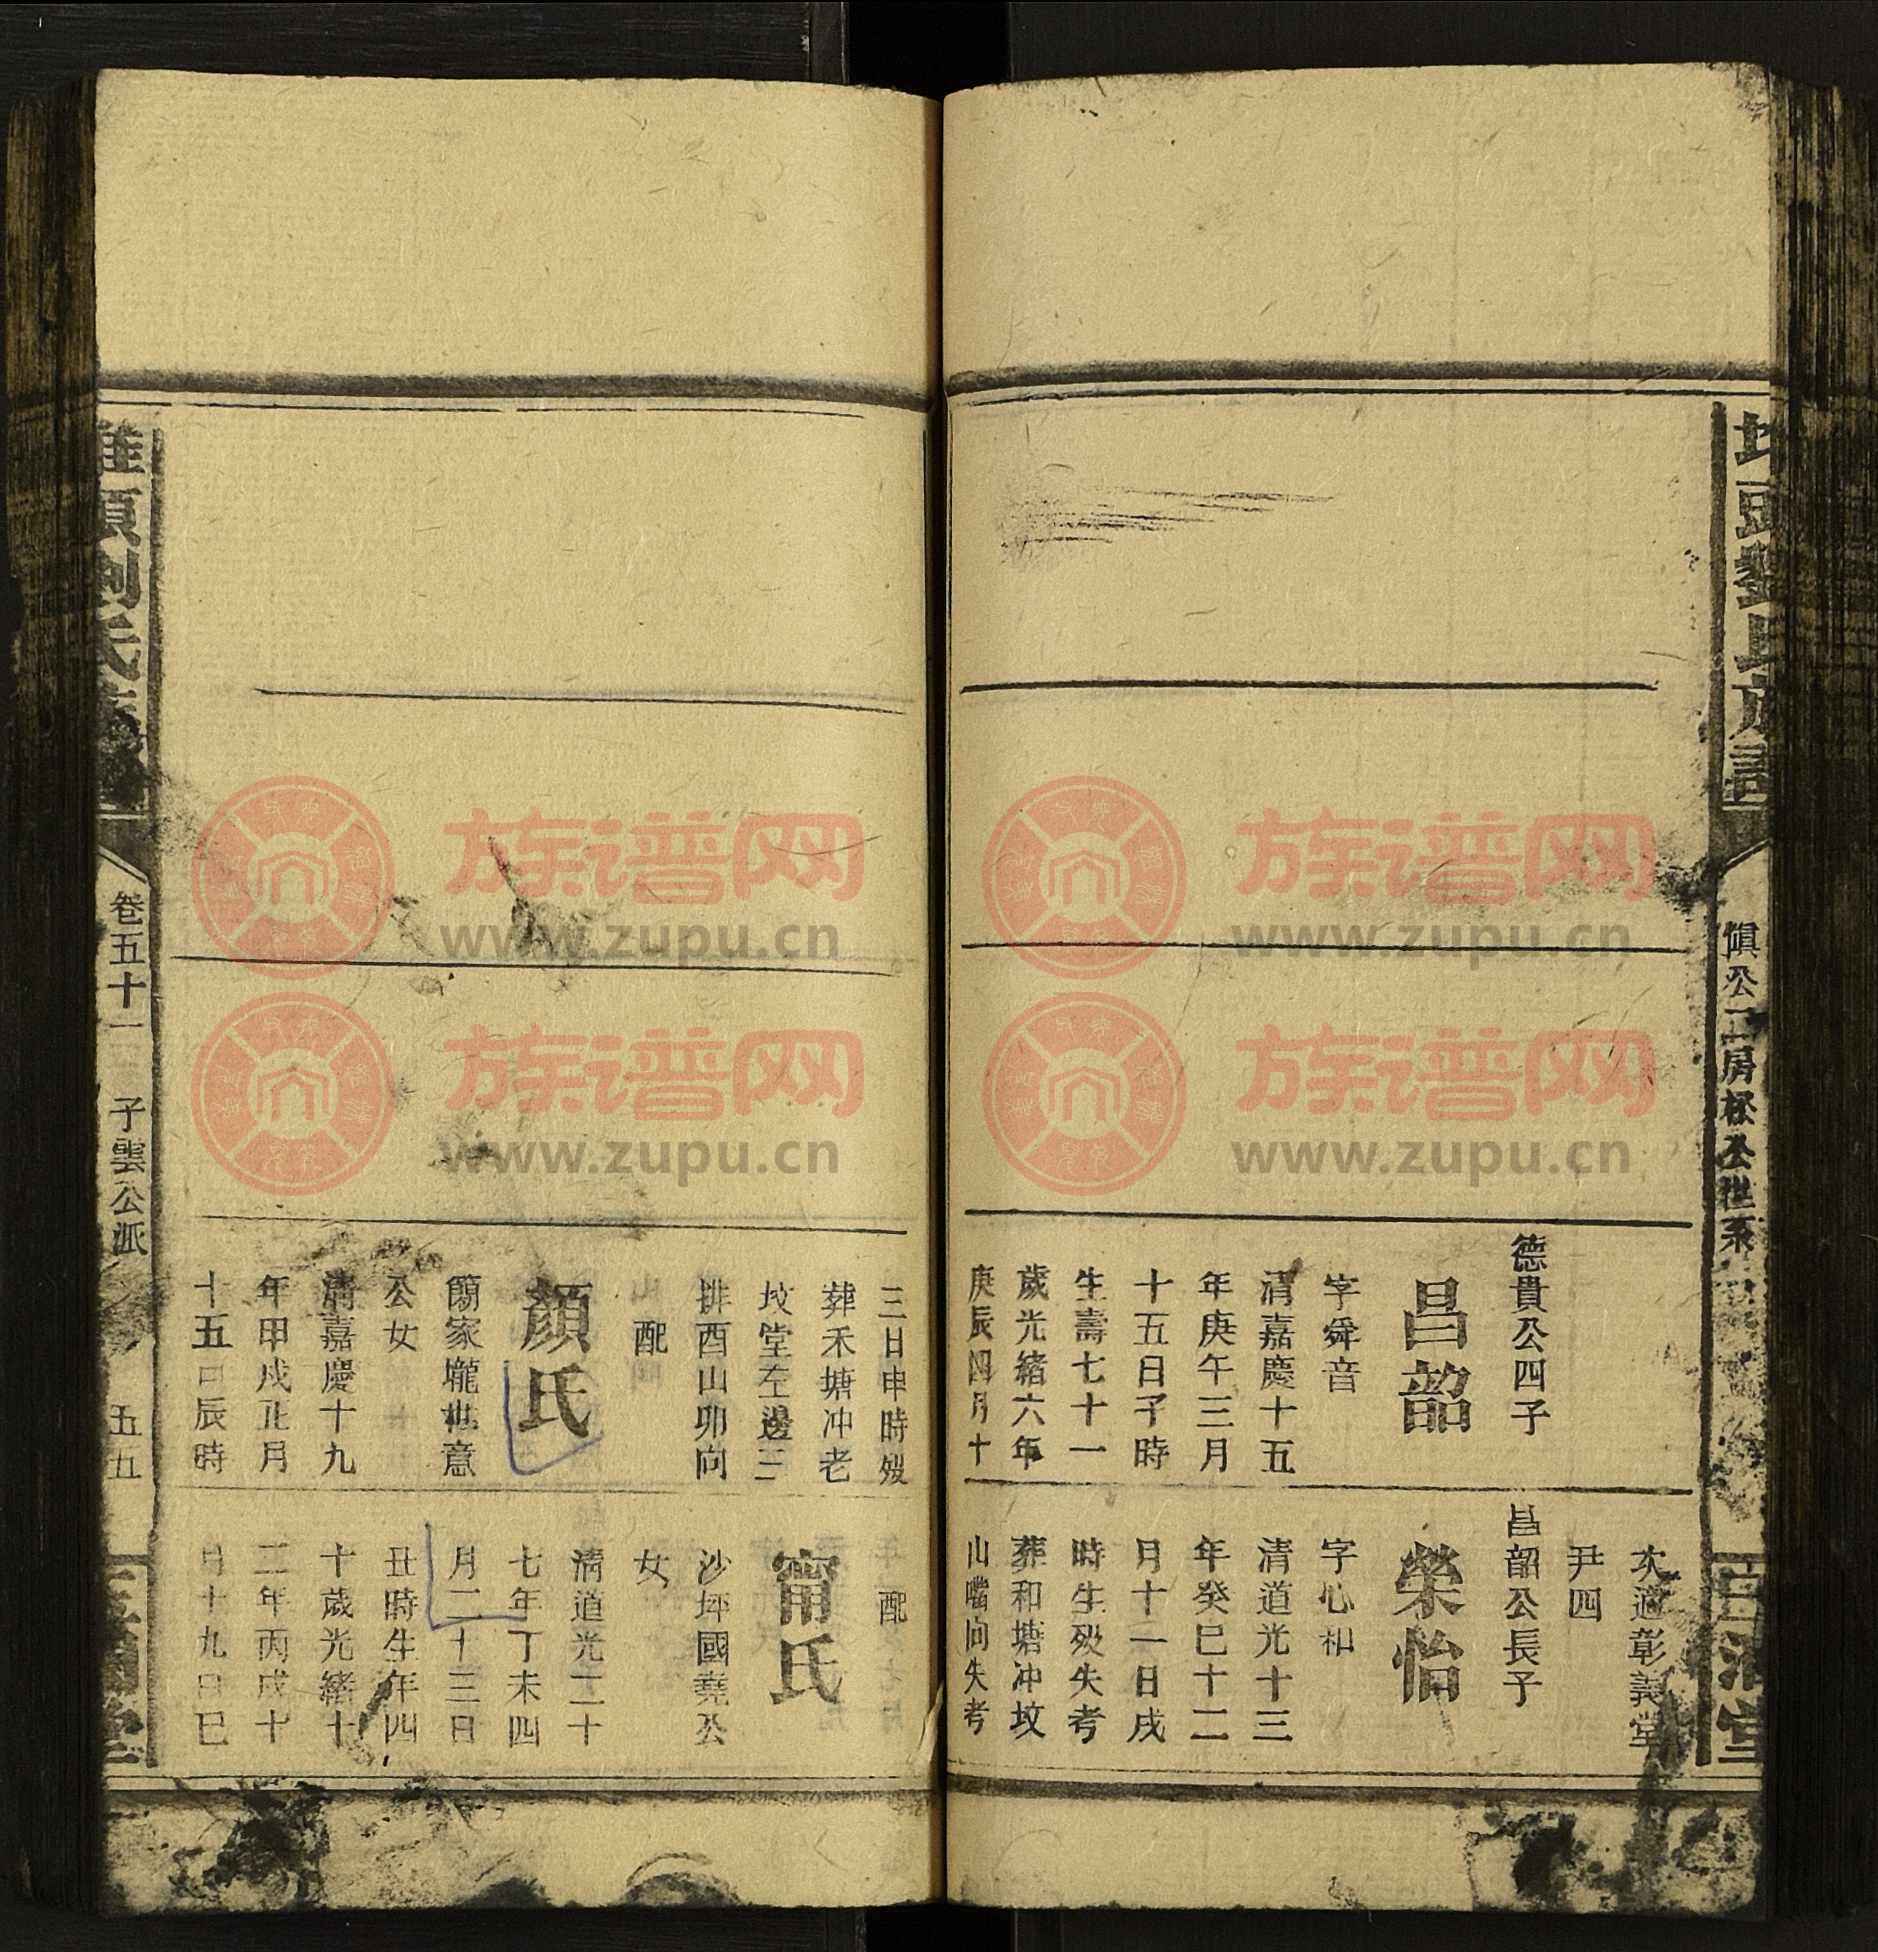 慎公二房松公世系
德貴公四子
昌韶
字舜音
清嘉慶十五
年庚午三月
十五日子時
生壽七十一
歲光緒六年
庚辰四月十
次適彰義堂
尹四
昌韶公長子
榮怡
字心和
清道光十三
年癸巳十二
月十一日戌
時生殁失考
葬和塘冲坟
山嘴向失考
三日申時殁
葬禾塘冲老
坟堂左邊三
排酉山卯向
配
顏氏
簡家壠世意
公女
清嘉慶十九
年甲戍正月
十五日辰時
配
甯氏
沙坪國堯公
女
清道光二十
七年丁未四
月二十三日
丑時生年四
十歲光緒十
二年丙戍十
月十九日巳
卷五十一
子雲公派
五五
族谱网
www.zupu.cn
族谱网
www.zupu.cn
族谱网
www.zupu.cn
族谱网
www.zupu.cn